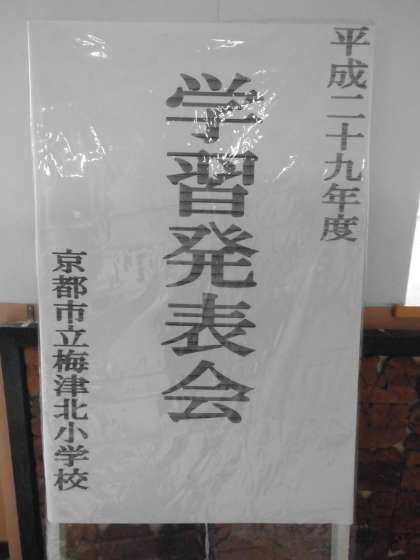 平成二十九年度
学習発表会
京都市立梅津北小学校